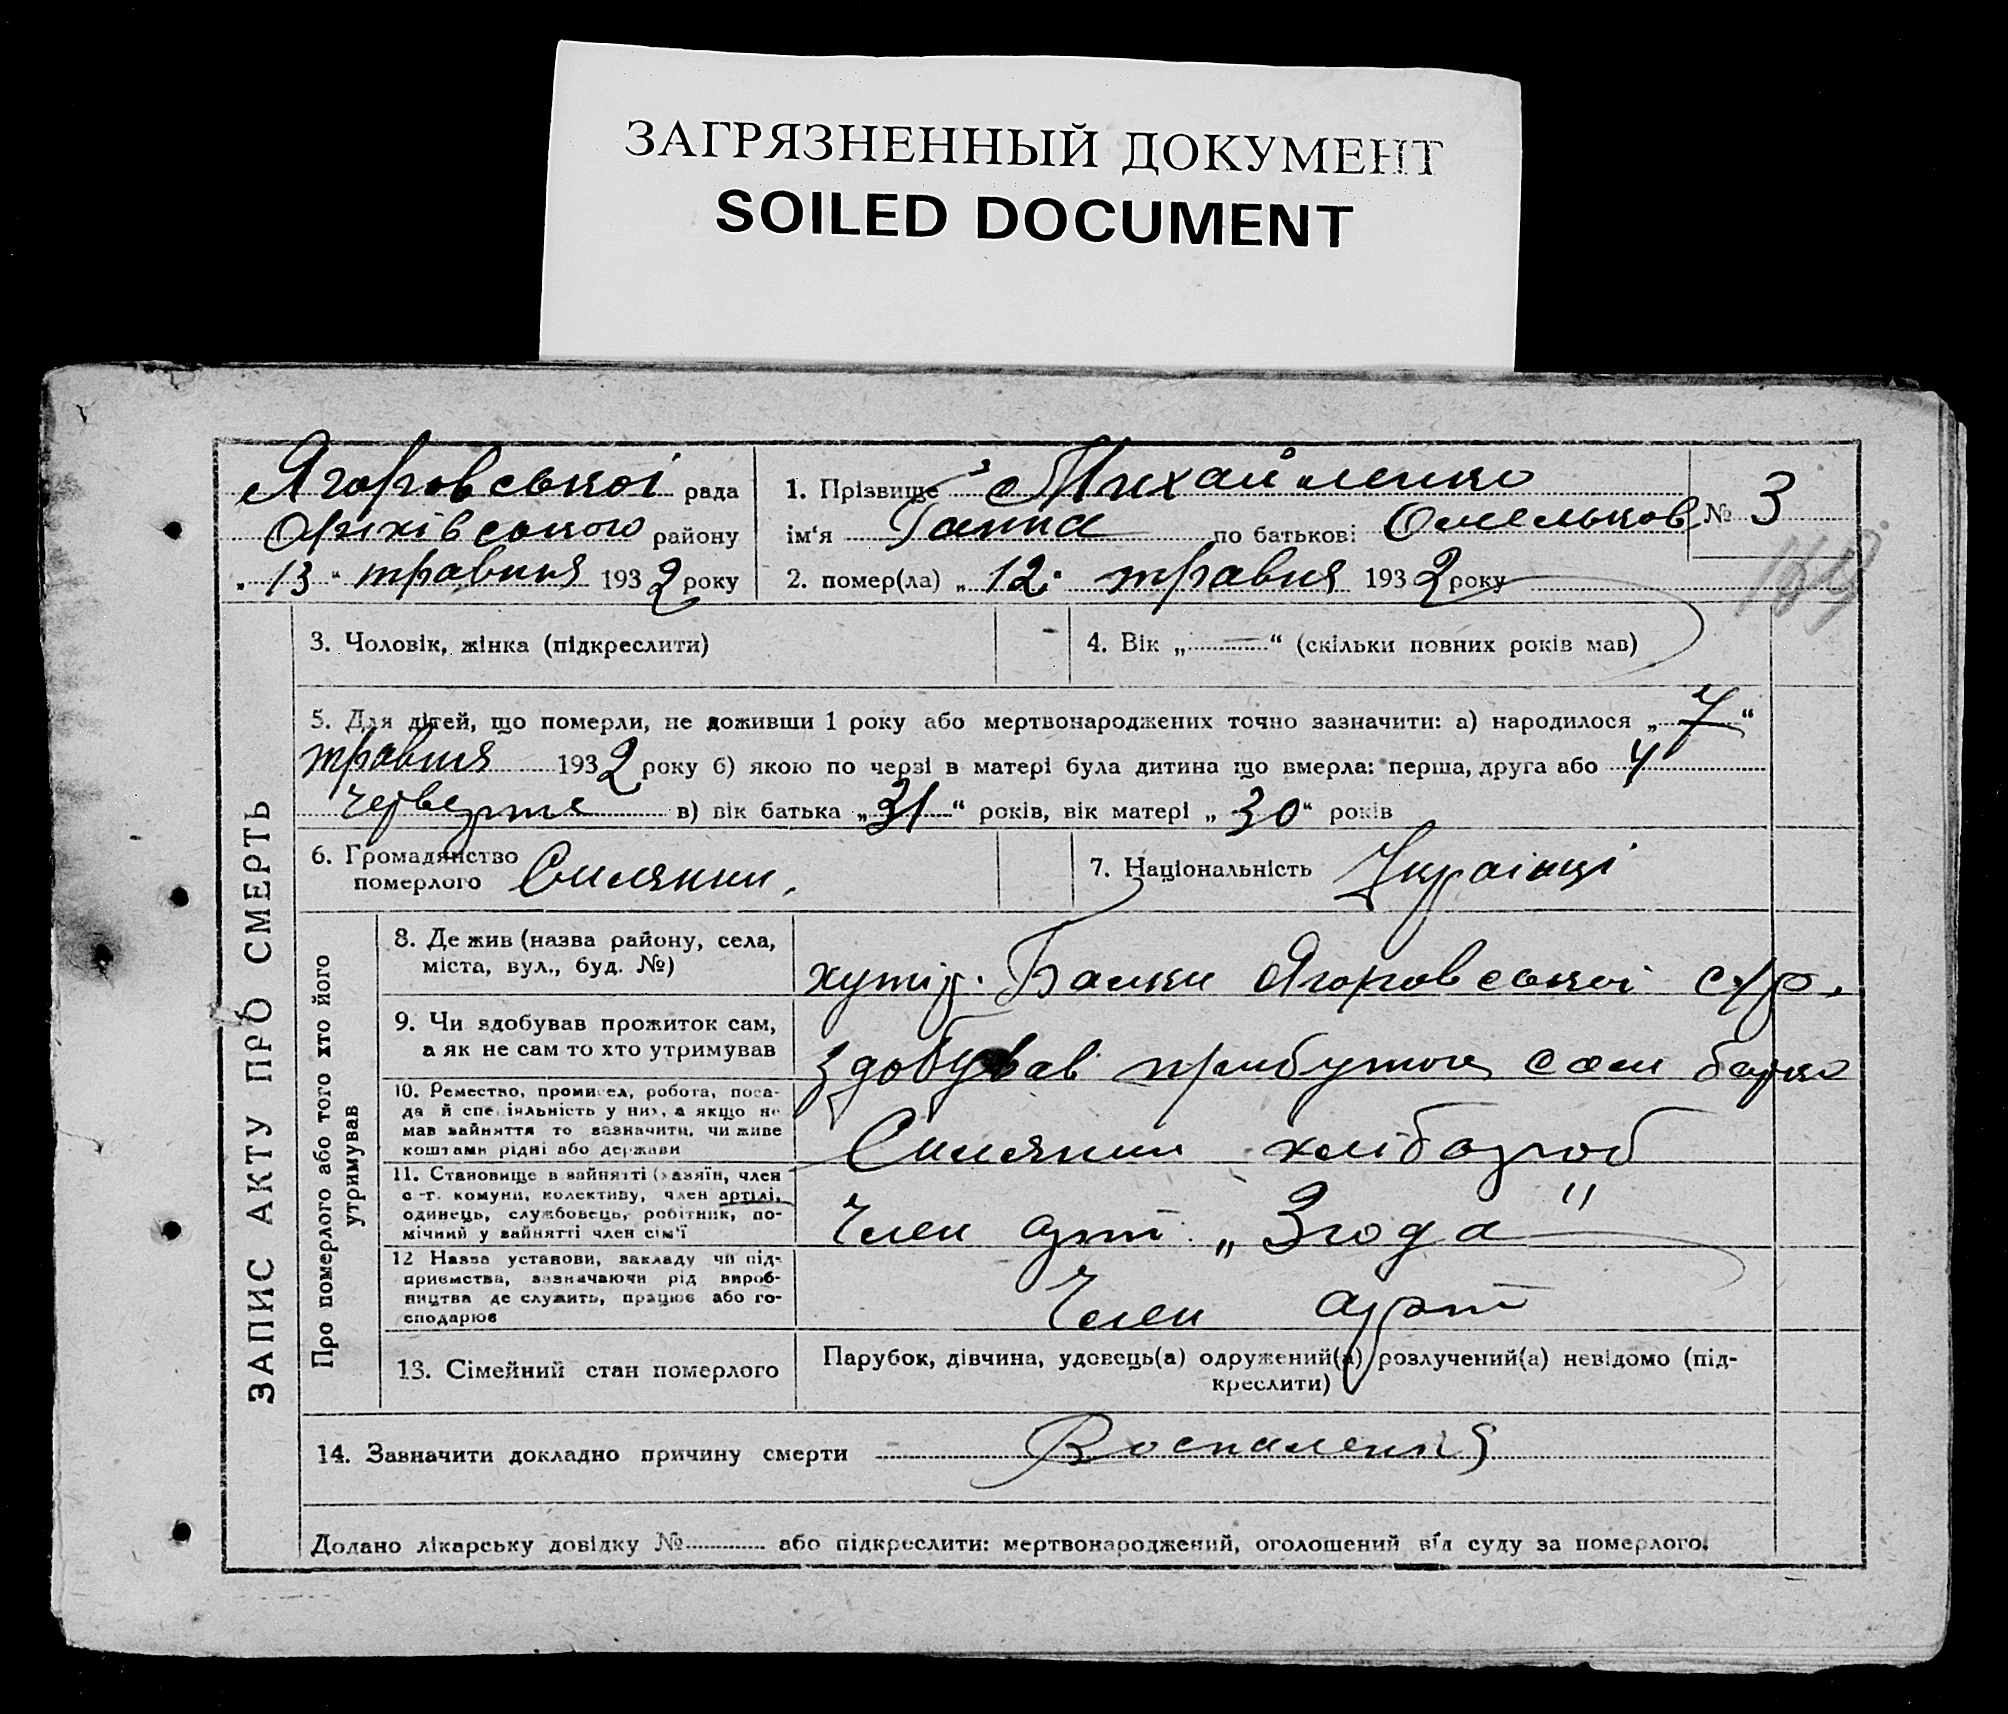 ЗАГРЯЗНЕННЫЙ ДОКУМЕНТ
SOILED DOCUMENT
Ягоровської рада
Оріхівського району
„ 13 “ травня 1932 року
1. Прізвище Михайленко
ім‘я Ганна по батькові Омельков
№ 3
2. помер(ла) „ 12 “ травня 1932 року
3. Чоловік, жінка (підкреслити)
4. Вік „ — “ (скільки повних років мав)
5. Для дітей, що померли, не доживши 1 року або мертвонароджених точно зазначити: а) народилося „ 7 “
травня 1932 року б) якою по черзі в матері була дитина що вмерла: перша, друга або 4
четверта в) вік батька „ 31 “ років, вік матері „ 30 “ років
6. Громадянство
померлого Силянин,
7. Національність Українці
ЗАПИС АКТУ ПРО СМЕРТЬ
Про померлого або того хто його
утримував
8. Де жив (назва району, села,
міста, вул., буд. №)
хутір. Балки Ягоровської с/р.
9. Чи здобував прожиток сам,
а як не сам то хто утримував
Здобував прибуток сам батько
10. Ремество, промисел, робота, поса-
да й спеціяльність у них, а якщо не
мав зайняття то зазначити, чи живе
коштами рідні або держави
Силянин хлібороб
11. Становище в зайнятті (хазяїн, член
с.-г. комуни, колективу, член артілі,
одинець, службовець, робітник, по-
мічний у зайнятті член сім‘ї
Член арт. „Згода"
12 Назва установи, закладу чи під-
приємства, зазначаючи рід вироб-
ництва де служить, працює або го-
сподарює
Член арт
13. Сімейний стан померлого
Парубок, дівчина, удовець(а) одружений(а) розлучений(а) невідомо (під-
креслити)
14. Зазначити докладно причину смерти Воспаления
Додано лікарську довідку № або підкреслити: мертвонароджений, оголошений від суду за померлого.